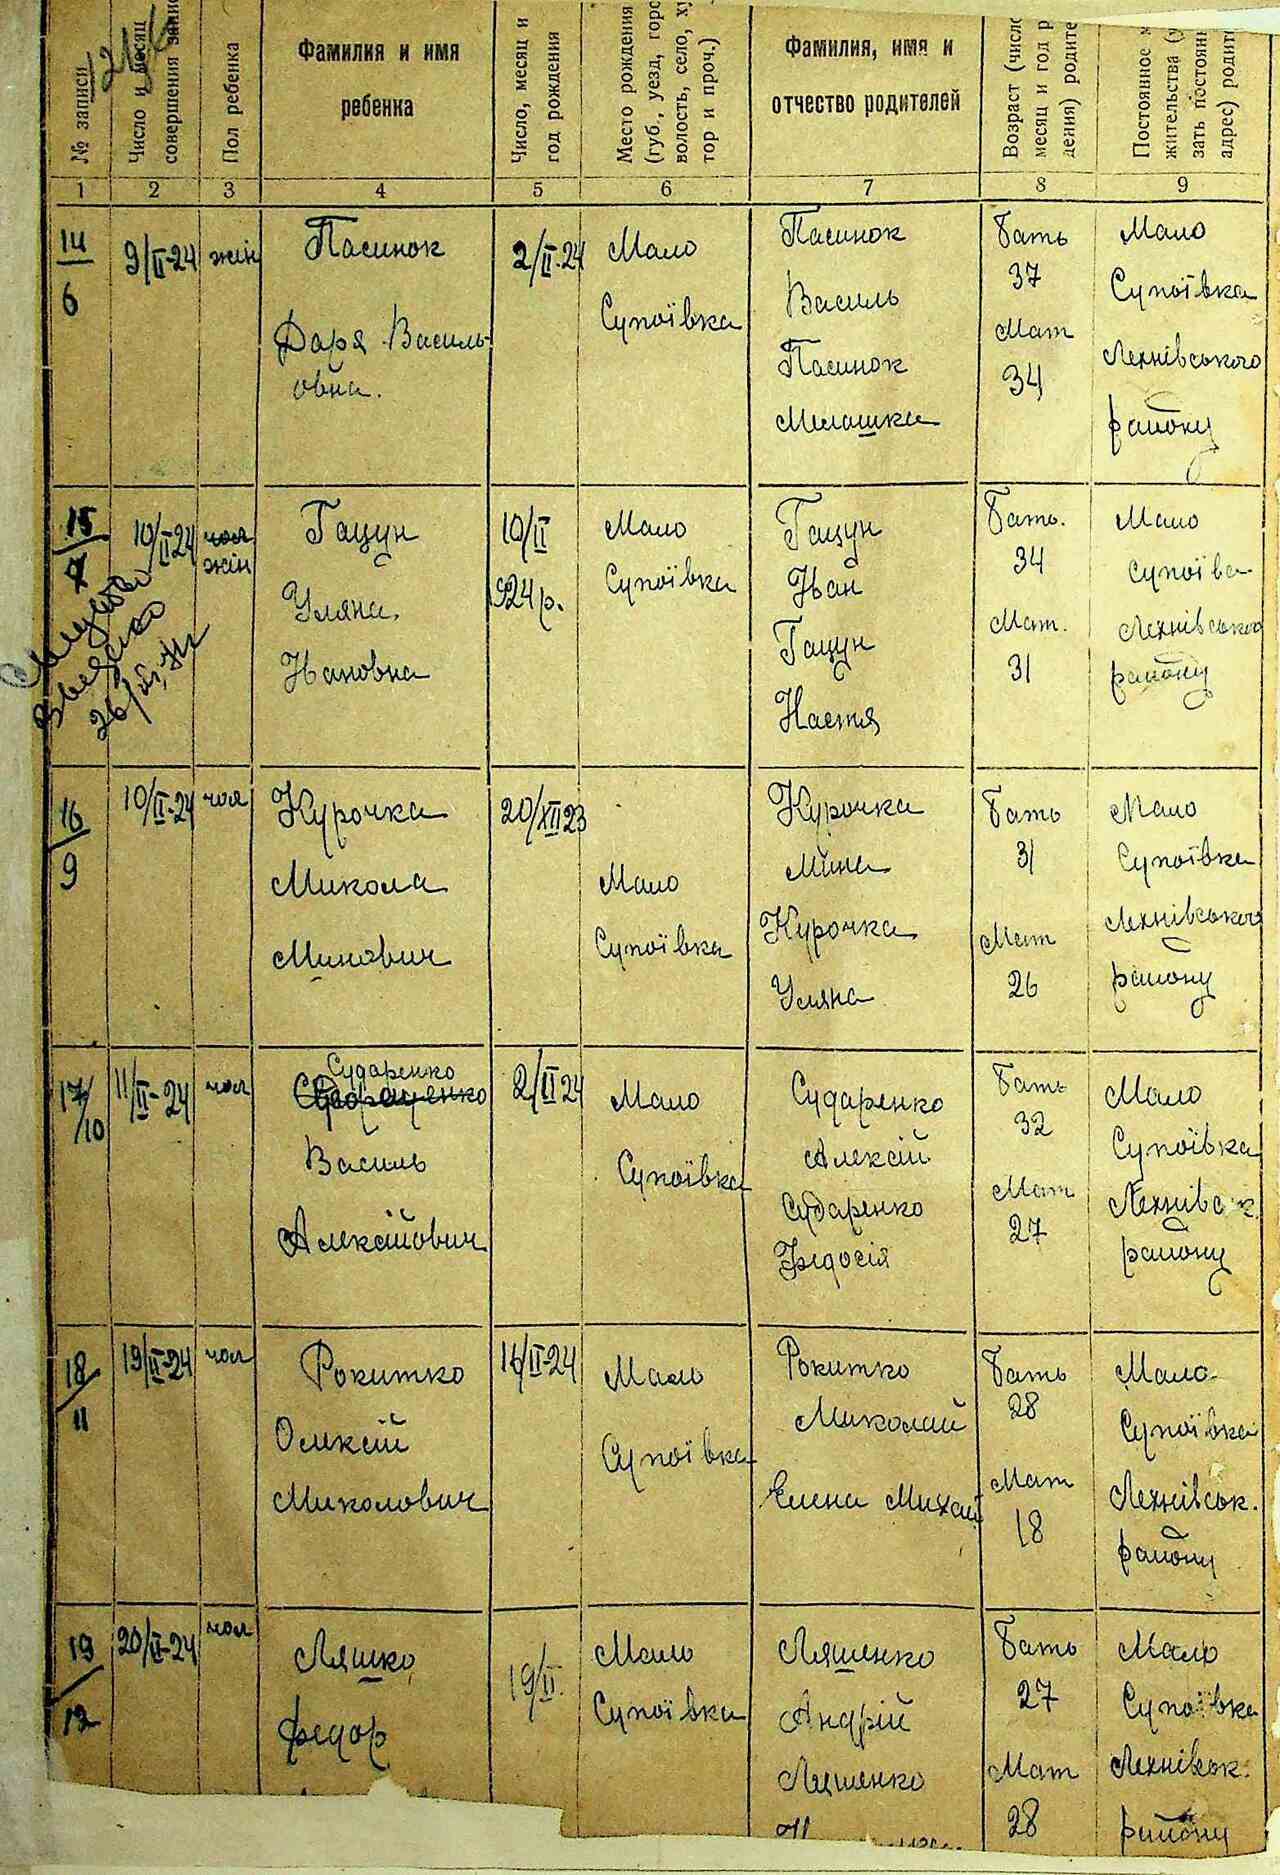 № записи
Число и месяц
совершения запис
Пол ребенка
Фамилия и имя
ребенка
Число, месяц и
год рождения
Место рождения
(губ., уезд, горо
волость, село, ху
тор и проч.)
Фамилия, имя и
отчество родителей
Возраст (число
месяц и год р
дения) родите
Постоянное м
жительства (у
зать постоянн
адрес) родите
1
2
3
4
5
6
7
8
9
14
6
9/II-24
жін
Пасинок
Даря Василь-
овна.
2/II-24
Мало
Супоївка
Пасинок
Василь
Пасинок
Мелашка
Бать
37
Мат
34
Мало
Супоївка
Лехнівського
району
15
7
26/VI
10/II-24
чол
жін
Гацун
Уляна
Івановна
10/II
924 р.
Мало
Супоївка
Гацун
Іван
Гацун
Настя
Бать.
34
Мат.
31
Мало
Супоївка
Лехнівського
району
16
9
10/II-24
чол
Курочка
Микола
Минович
20/XII 23
Мало
Супоївка
Курочка
Мина
Курочка
Уляна
Бать
31
Мат
26
Мало
Супоївка
Лехнівського
району
17/10
11/II-24
чол
Сударенко
Василь
Алексійович
2/II 24
Мало
Супоївка
Сударенко
Алексій
Сударенко
Федосія
Бать
32
Мат
27
Мало
Супоївка
Лехнівськ.
району
18
11
19/II-24
чол
Рокитко
Олексій
Миколович
16/II-24
Мало
Супоївка
Рокитко
Миколай
Елена Михай
Бать
28
Мат
18
Мало
Супоївка
Лехнівськ.
району
19
12
20/II-24
чол
Ляшко
Федор
19/II.
Мало
Супоївка
Ляшенко
Андрій
Ляшенко
Бать
27
Мат
28
Мало
Супоївка
Лехнівськ.
району